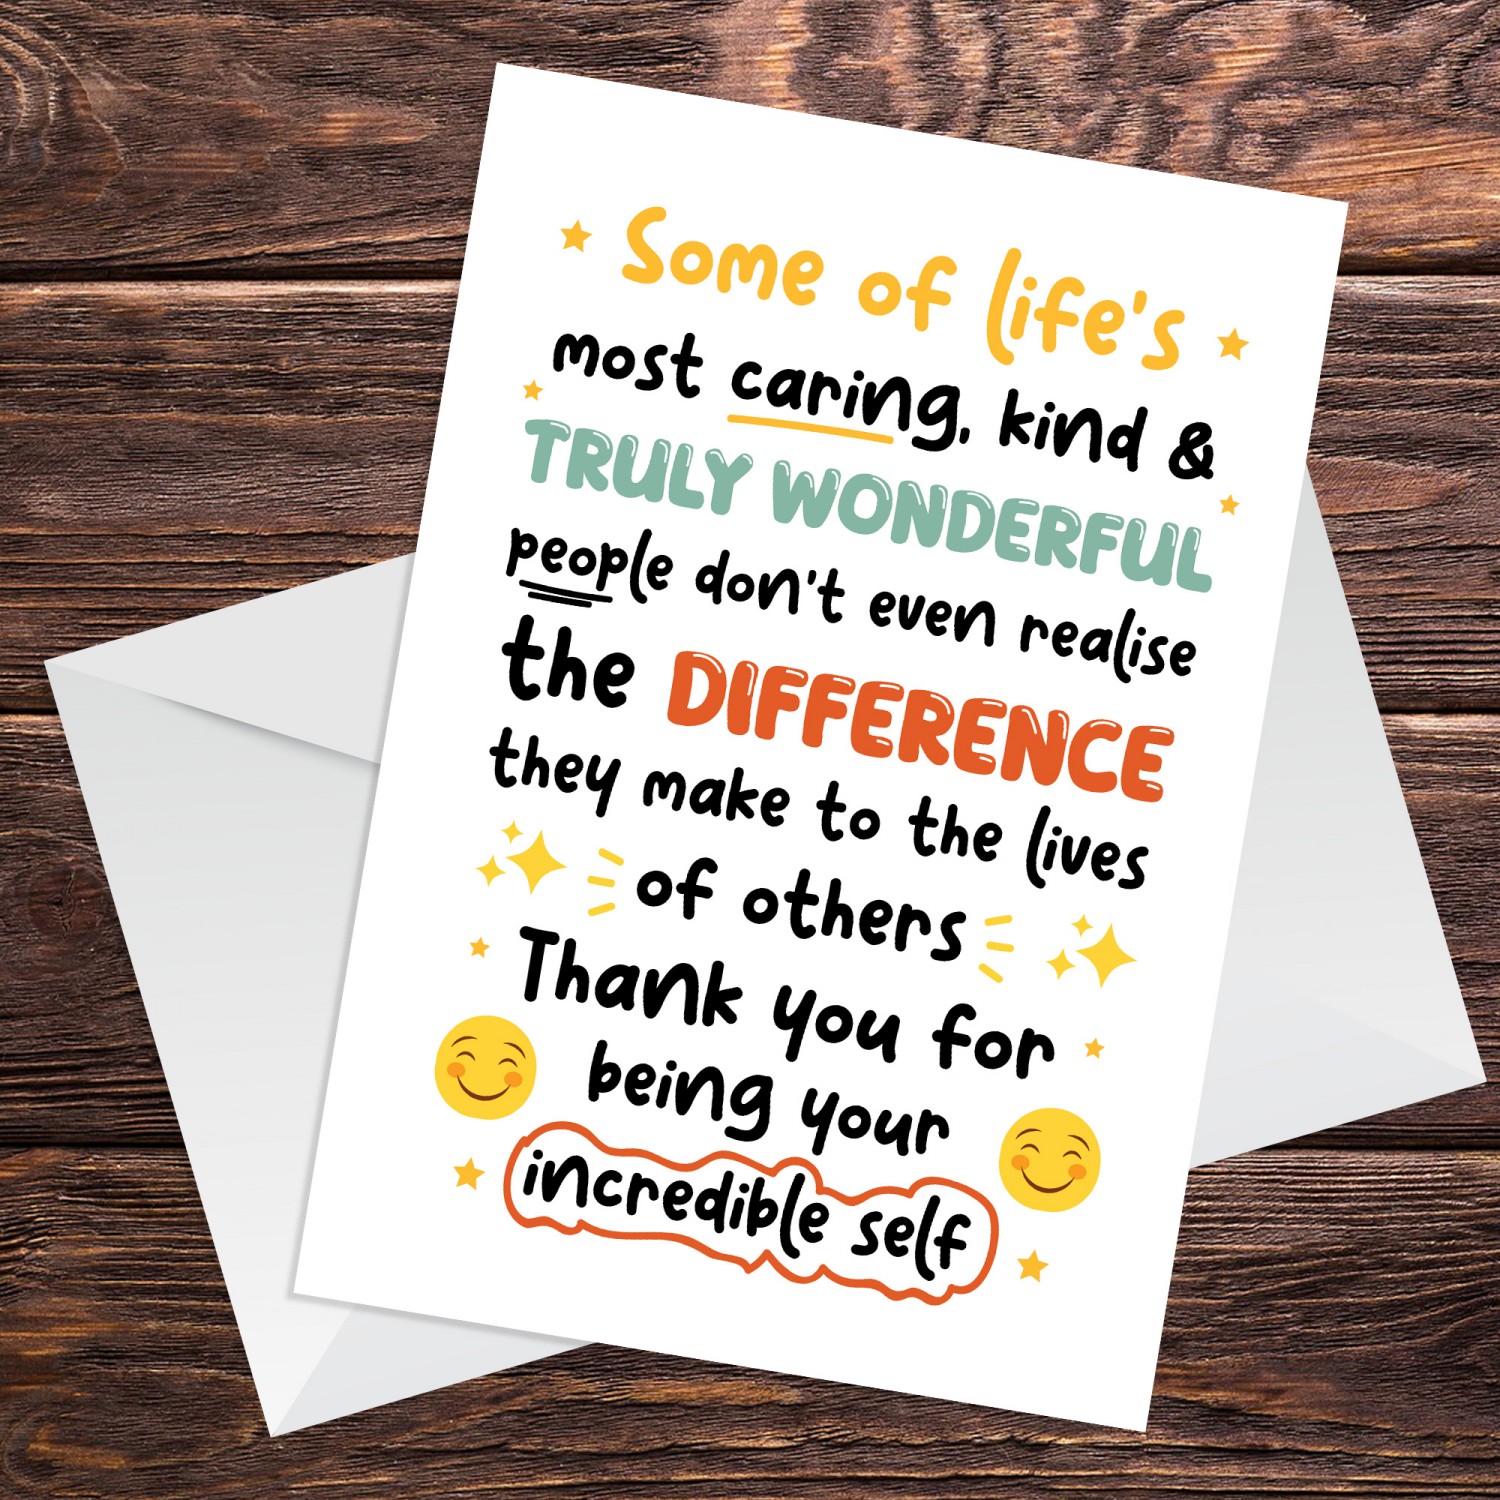 Some of life's
most caring, kind &
TRULY WONDERFUL
people don't even realise
the DIFFERENCE
they make to the lives
of others
Thank you for
being your
incredible self